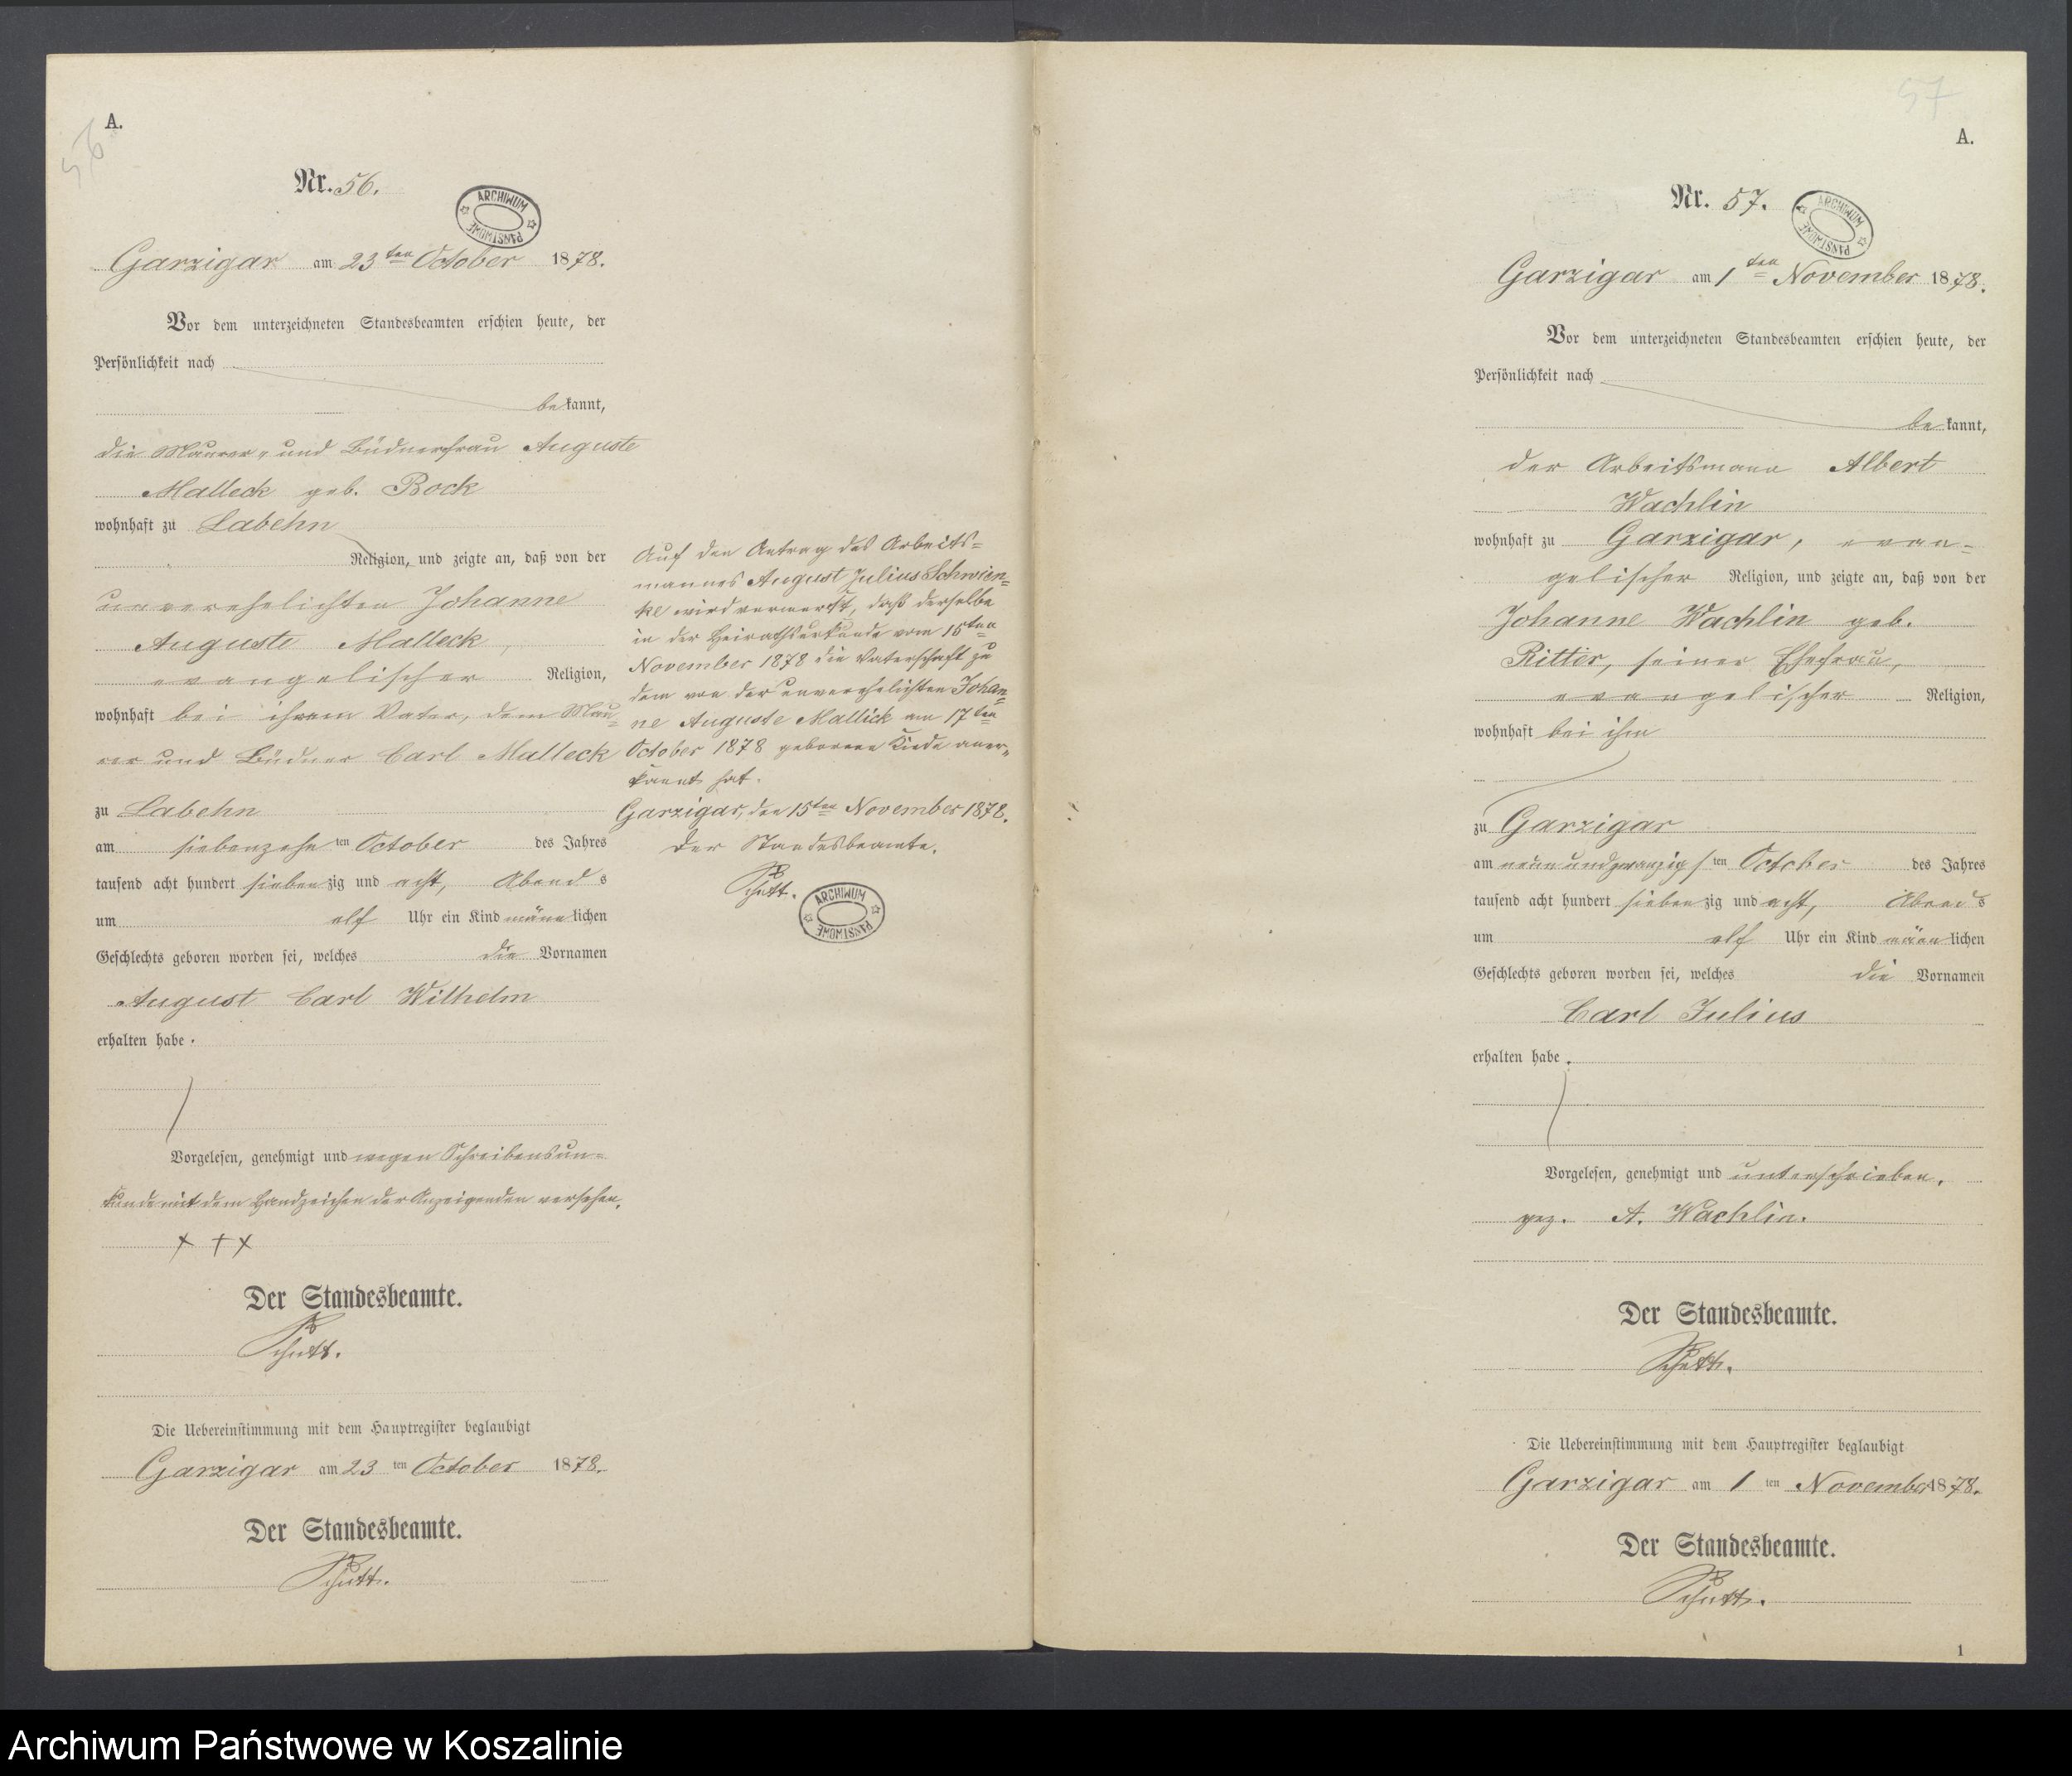 A.
56
Nr. 56.
ARCHIWUM PAŃSTWOWE
Garzigar am 23ten October 1878.
Vor dem unterzeichneten Standesbeamten erschien heute, der
Persönlichkeit nach
bekannt,
die Maurer- und Büdnerfrau Auguste
Malleck geb. Bock
wohnhaft zu Labehn
Religion, und zeigte an, daß von der
unverehelichten Johanne
Auguste Malleck,
evangelischer Religion,
wohnhaft bei ihrem Vater, dem Mau-
rer und Büdner Carl Malleck
zu Labehn
am siebenzehnten October des Jahres
tausend acht hundert siebenzig und acht, Abends
um elf Uhr ein Kind männlichen
Geschlechts geboren worden sei, welches die Vornamen
August Carl Wilhelm
erhalten habe.
Vorgelesen, genehmigt und wegen Schreibensun-
kunde mit dem Handzeichen der Anzeigenden versehen.
+++
Der Standesbeamte.
Schütt.
Die Uebereinstimmung mit dem Hauptregister beglaubigt
Garzigar am 23ten October 1878.
Der Standesbeamte.
Schütt.
Auf den Antrag des Arbeits-
mannes August Julius Schwien-
ke wird vermerkt, daß derselbe
in der Heirathsurkunde vom 15ten
November 1878 die Vaterschaft zu
dem von der unverehelichten Johan-
ne Auguste Mallick am 17ten
October 1878 geborenen Kinde aner-
kannt hat.
Garzigar, den 15ten November 1878.
Der Standesbeamte.
Schütt.
ARCHIWUM PAŃSTWOWE
57
A.
Nr. 57.
ARCHIWUM PAŃSTWOWE
Garzigar am 1ten November 1878.
Vor dem unterzeichneten Standesbeamten erschien heute, der
Persönlichkeit nach
bekannt,
der Arbeitsmann Albert
Wachlin
wohnhaft zu Garzigar, evan-
gelischer Religion, und zeigte an, daß von der
Johanne Wachlin geb.
Ritter, seiner Ehefrau,
evangelischer Religion,
wohnhaft bei ihm
zu Garzigar
am neunundzwanzigsten October des Jahres
tausend acht hundert siebenzig und acht, Abends
um elf Uhr ein Kind männlichen
Geschlechts geboren worden sei, welches die Vornamen
Carl Julius
erhalten habe.
Vorgelesen, genehmigt und unterschrieben.
gez. A. Wachlin.
Der Standesbeamte.
Schütt.
Die Uebereinstimmung mit dem Hauptregister beglaubigt
Garzigar am 1ten November 1878.
Der Standesbeamte.
Schütt.
1
Archiwum Państwowe w Koszalinie